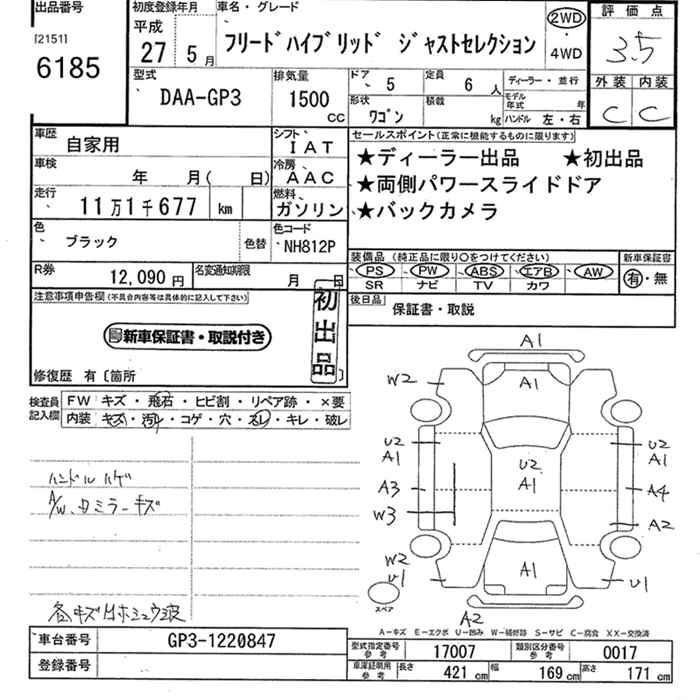 出品番号
[2151]
6185
初度登録年月
平成
27年 5月
車名・グレード
フリードハイブリッド ジャストセレクション
2WD
・
4WD
評価点
3.5
外装 内装
C C
型式
DAA-GP3
排気量
1500
cc
ドア 5
定員 6人
形状
ワゴン
積載 kg
ディーラー・並行
モデル年式 年
ハンドル 左・右
車歴 自家用
シフト IAT
車検 年 月( 日)
冷房 AAC
走行 11万1千677 km
燃料 ガソリン
色 ブラック
色替
色コード NH812P
セールスポイント(正常に機能するものに限ります)
★ディーラー出品 ★初出品
★両側パワースライドドア
★バックカメラ
装備品 (純正品に限り○をつけてください)
PS PW ABS エアB AW
SR ナビ TV カワ
新車保証書
有・無
R券 12,090円
名変通知期限 月 日
後日品 保証書・取説
注意事項申告欄(不具合内容等は具体的に記入して下さい)
新車保証書・取説付き
初出品
修復歴 有〔箇所 〕
検査員記入欄
FW キズ・飛石・ヒビ割・リペア跡・×要
内装 キズ・汚れ・コゲ・穴・スレ・キレ・破レ
ハンドルハゲ
A/W、ロミラーキズ
A1
W2 A1
U2 U2
A1 U2 A1
A3 A1 A4
W3 A2
W2
U1 A1 U1
スペア
A2
A-キズ E-エクボ U-凹み W-補修跡 S-サビ C-腐食 XX-交換済
車台番号 GP3-1220847
登録番号
型式指定番号
参考 17007
類別区分番号
参考 0017
車庫証明用
参考
長さ 421 cm 幅 169 cm 高さ 171 cm